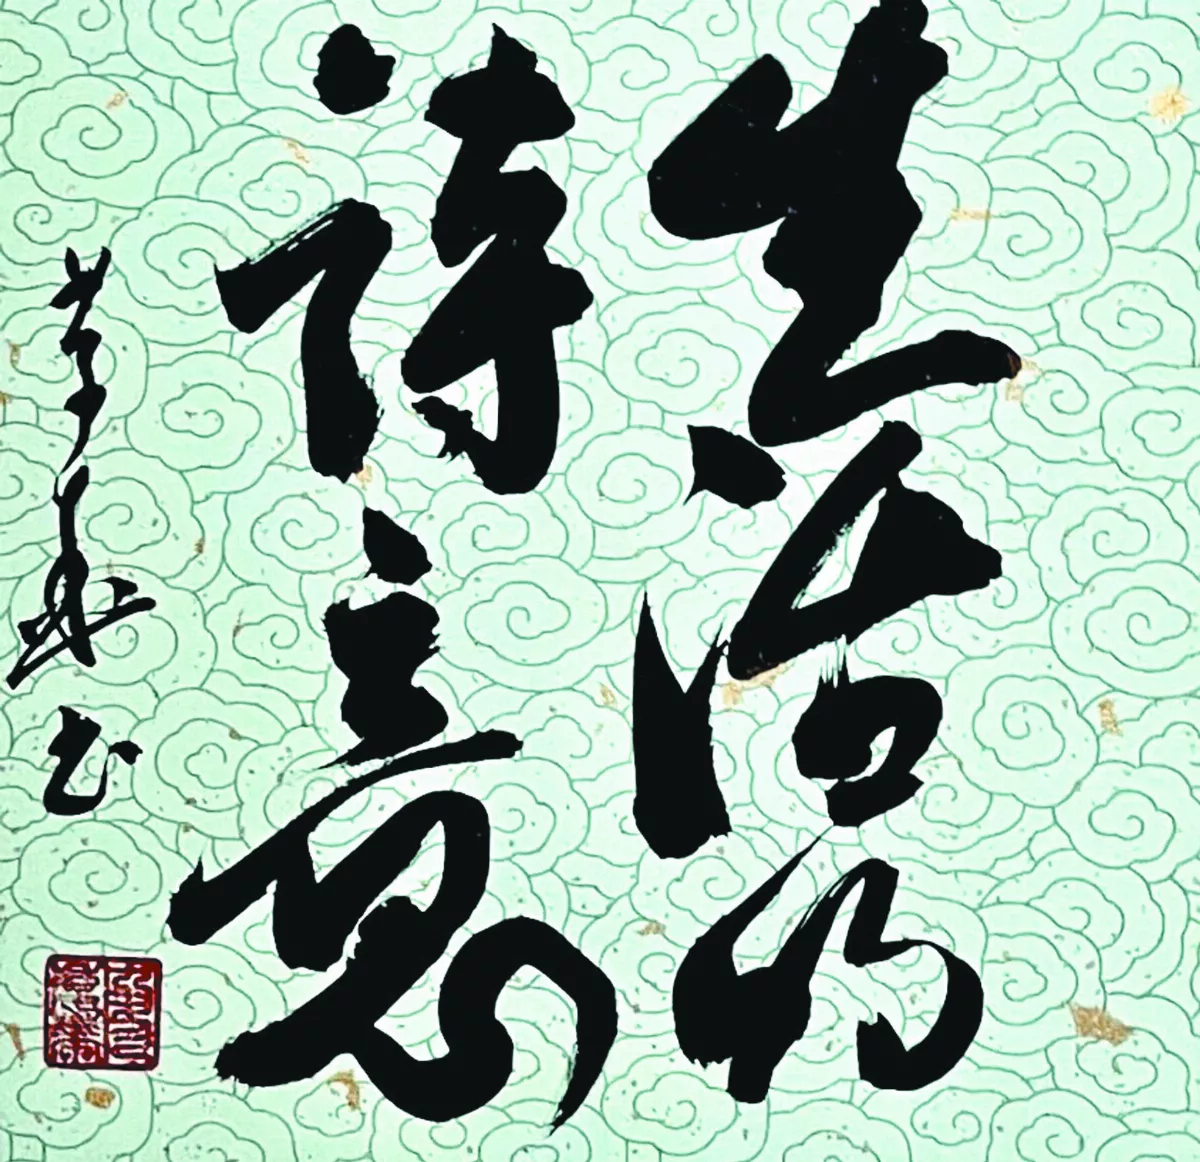 生活的
诗意
书